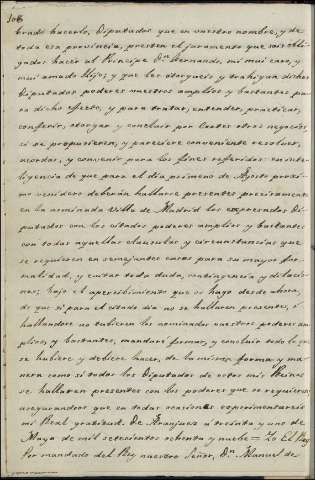 108
brado hacerlo, Diputados que en vuestro nombre, y de
toda esa provincia, presten el juramento que sois obli-
gados hacer al Principe Dn. Fernando, mi mui caro, y
mui amado Hijo; y que les otorgueis y trahigan dichos
Diputados poderes vuestros amplios y bastantes pa-
ra dicho efecto, y para tratar, entender, practicar,
conferir, otorgar y concluir por Cortes otros negocios
si se propusieren, y pareciere conveniente resolver,
acordar, y convenir para los fines referidos en inte-
ligencia de que para el dia primero de Agosto proxi-
mo venidero deberán hallarse presentes precisamente
en la nominada Villa de Madrid los expresados Di-
putados con los citados poderes amplios y bastantes
con todas aquellas clausulas y circunstancias que
se requieren en semejantes casos para su mayor for-
malidad, y evitar toda duda, contingencia y dilacio-
nes; bajo el apercibimiento que os hago desde ahora,
de que si para el citado dia no se hallaren presentes, ó
hallandose no tubieren los nominados vuestros poderes am-
plios y bastantes, mandaré formar, y concluir todo lo que
se hubiere y debiere hacer, de la misma forma y ma-
nera como si todos los Diputados de estos mis Reinos
se hallaren presentes con los poderes que se requieren
asegurandoos que en todas ocasiones experimentareis
mi Real gratitud. De Aranjuez á treinta y uno de
Mayo de mil setecientos ochenta y nuebe = Yo El Rey
Por mandado del Rey nuestro Señor, Dn. Manuel de